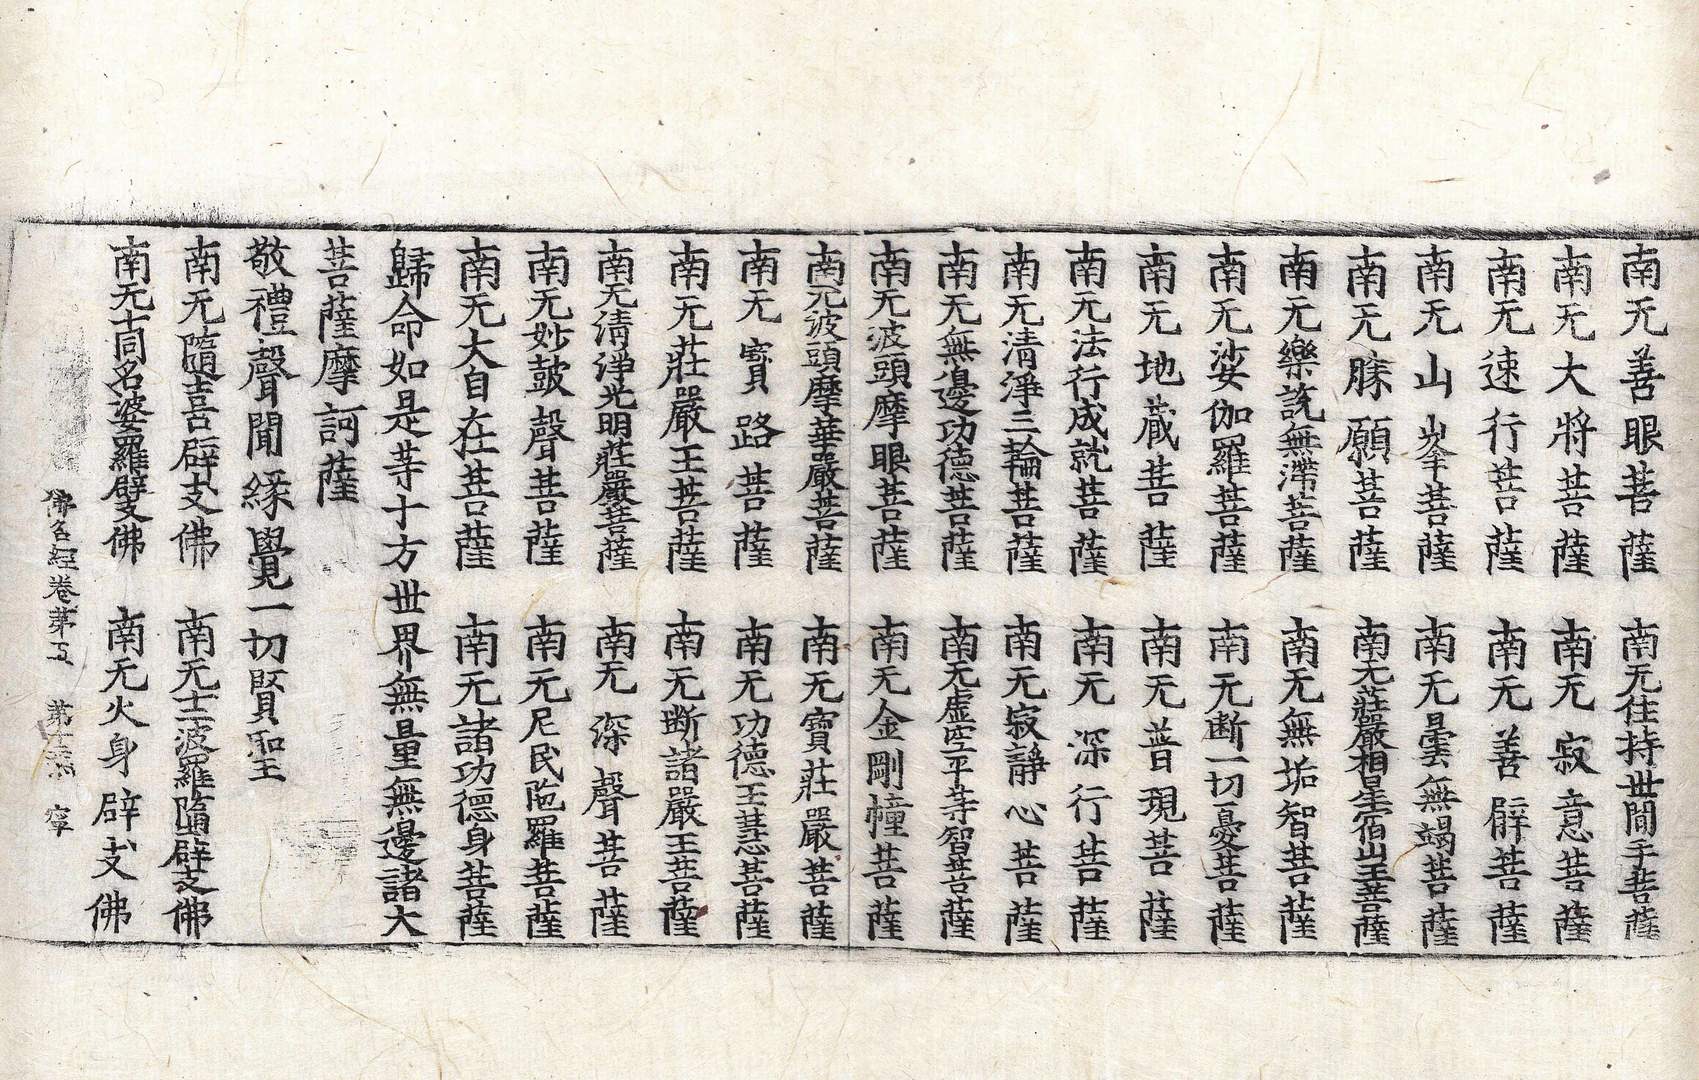 南无善眼菩薩　南无住持世間手菩薩
南无大將菩薩　南无寂意菩薩
南无速行菩薩　南无善辟菩薩
南无山峯菩薩　南无曇無竭菩薩
南无勝願菩薩　南无莊嚴相星宿山王菩薩
南无樂說無滯菩薩　南无無垢智菩薩
南无娑伽羅菩薩　南无断一切憂菩薩
南无地蔵菩薩　南无普現菩薩
南无法行成就菩薩　南无深行菩薩
南无清淨三輪菩薩　南无寂靜心菩薩
南无無邊功德菩薩　南无虛空平等智菩薩
南无波頭摩眼菩薩　南无金剛幢菩薩
南无波頭摩華嚴菩薩　南无寶莊嚴菩薩
南无寶路菩薩　南无功德王慧菩薩
南无莊嚴王菩薩　南无断諸嚴王菩薩
南无清淨光明莊嚴菩薩　南无深聲菩薩
南无妙皷聲菩薩　南无尼民陁羅菩薩
南无大自在菩薩　南无諸功德身菩薩
歸命如是等十方世界無量無邊諸大
菩薩摩訶薩
敬禮聲聞縁覺一切賢聖
南无隨喜辟支佛　南无十二婆羅墮辟支佛
南无十同名婆羅辟支佛　南无火身辟支佛
佛名經卷苐五　第十　寧